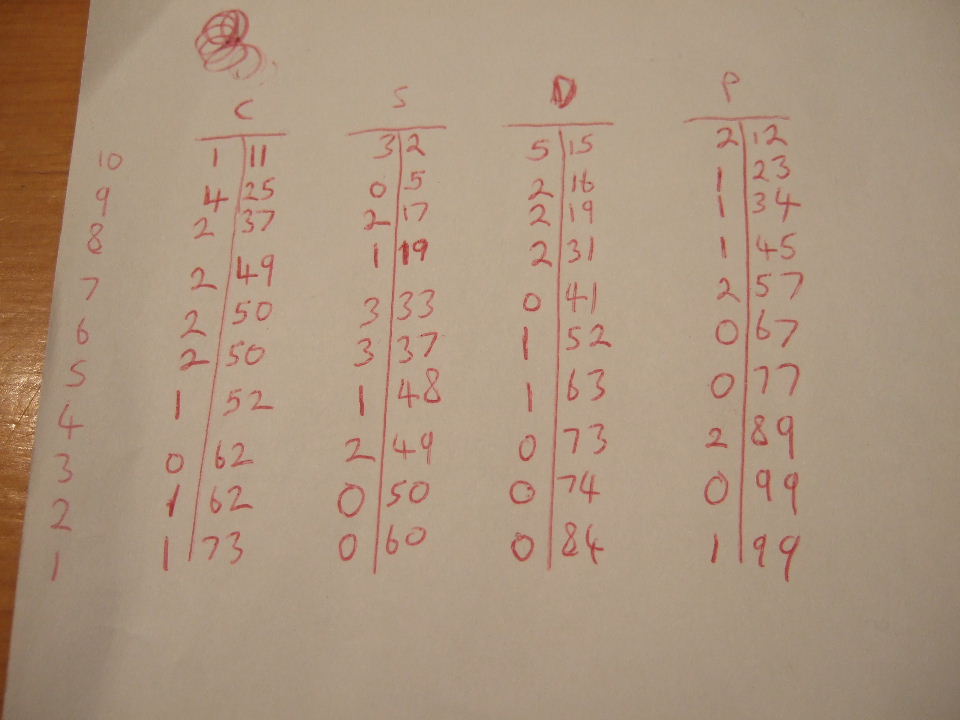 C S D P
10 1 11 3 2 5 15 2 12
9 4 25 0 5 2 16 1 23
8 2 37 2 17 2 19 1 34
7 2 49 1 19 2 31 1 45
6 2 50 3 33 0 41 2 57
5 2 50 3 37 1 52 0 67
4 1 52 1 48 1 63 0 77
3 0 62 2 49 0 73 2 89
2 1 62 0 50 0 74 0 99
1 1 73 0 60 0 84 1 99